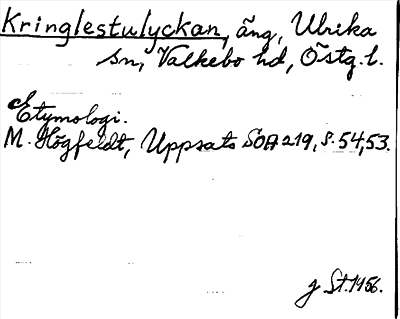 Kringlestulyckan, äng, Ulrika
sn, Valkebo hd, Östg. l.
Etymologi.
M. Högfeldt, Uppsats SOA 219, s. 54, 53.
g St. 1956.